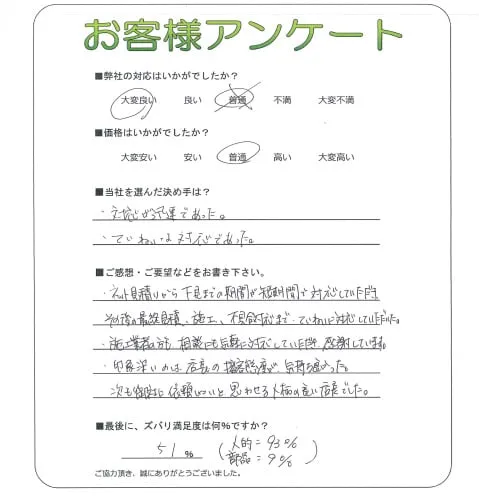 お客様アンケート
■弊社の対応はいかがでしたか?
大変良い 良い 普通 不満 大変不満
■価格はいかがでしたか?
大変安い 安い 普通 高い 大変高い
■当社を選んだ決め手は?
・対応が迅速であった。
・ていねいな対応であった。
■ご感想・ご要望などをお書き下さい。
・ネット見積りから下見までの期間が短期間で対応していただけ
その後の最終見積、施工、不具合対応まで、ていねいに対応していただいた。
・施工業者の方も相談にも気軽に対応していただき、感謝しています。
・印象深いのは店長の接客態度が気持ち良かった。
次も御社に依頼したいと思わせる人柄の良い店長でした。
■最後に、ズバリ満足度は何%ですか?
51 % (人的=93% 部品=9%)
ご協力頂き、誠にありがとうございました。